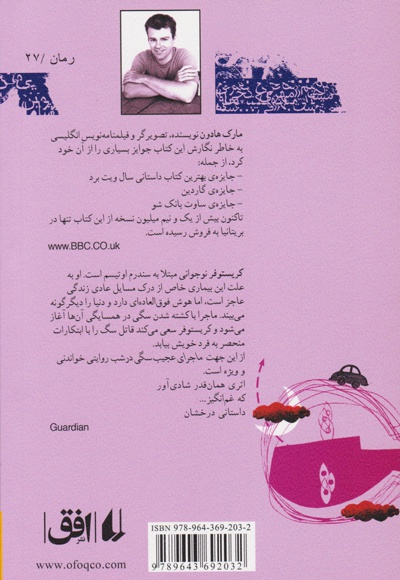 رمان / ۲۷
مارک هادون نویسنده، تصویرگر و فیلمنامه‌نویس انگلیسی
به خاطر نگارش این کتاب جوایز بسیاری را از آن خود
کرد، از جمله:
- جایزه‌ی بهترین کتاب داستانی سال ویت برد
- جایزه‌ی گاردین
- جایزه‌ی ساوت بانک شو
تاکنون بیش از یک و نیم میلیون نسخه از این کتاب تنها در
بریتانیا به فروش رسیده است.
www.BBC.CO.uk
کریستوفر نوجوانی مبتلا به سندرم اوتیسم است. او به
علت این بیماری خاص از درک مسایل عادی زندگی
عاجز است، اما هوش فوق‌العاده‌ای دارد و دنیا را دیگرگونه
می‌بیند. ماجرا با کشته شدن سگی در همسایگی آن‌ها آغاز
می‌شود و کریستوفر سعی می‌کند قاتل سگ را با ابتکارات
منحصر به فرد خویش بیابد.
از این جهت ماجرای عجیب سگی در شب روایتی خواندنی
و ویژه است.
اثری همان‌قدر شادی‌آور
که غم‌انگیز...
داستانی درخشان
Guardian
نشر افق
www.ofoqco.com
ISBN 978-964-369-203-2
9789643692032